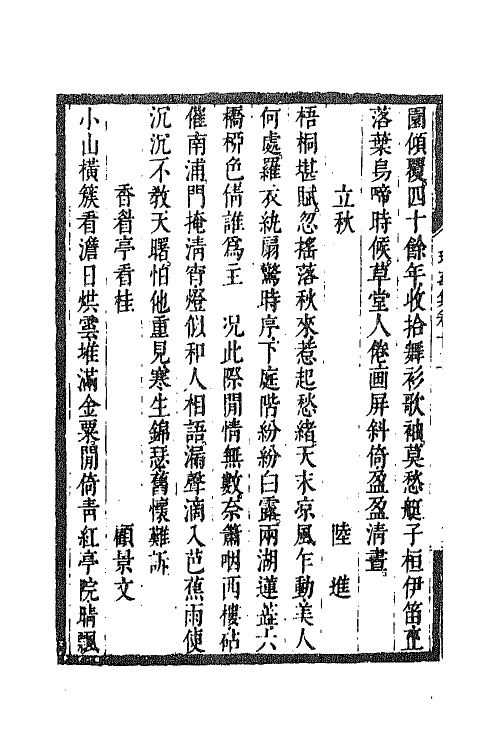 園傾覆四十餘年收拾舞衫歌袖莫愁艇子桓伊笛在
落葉烏啼時候草堂人倦画屏斜倚盈盈清晝
立秋 陸進
梧桐堪賦忽搖落秋來惹起愁緒天末凉風乍動美人
何處羅衣紈扇驚時序下庭階紛紛白露兩湖蓮蕋六
橋桺色倩誰為主 况此際閒情無數奈簫咽西樓砧
催南浦門掩清宵燈似和人相語漏聲滴入芭蕉雨使
沉沉不教天曙怕他重見寒生錦瑟舊懷難訴
香眘亭看桂 顧景文
小山橫簇看澹日烘雲堆滿金粟閒倚靑紅亭院晴飄